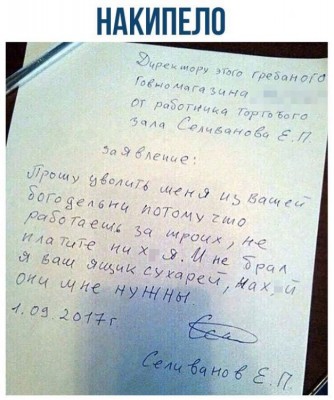 НАКИПЕЛО
Директору этого гребаного
Говномагазина
от работника Торгового
зала Селиванова Е.П.
Заявление:
Прошу уволить меня из вашей
богодельни потому что
работаешь за троих, не
платите них я. И не брал
я ваш ящик сухарей, нах й
они мне нужны
1.09.2017г
Селиванов Е.П.